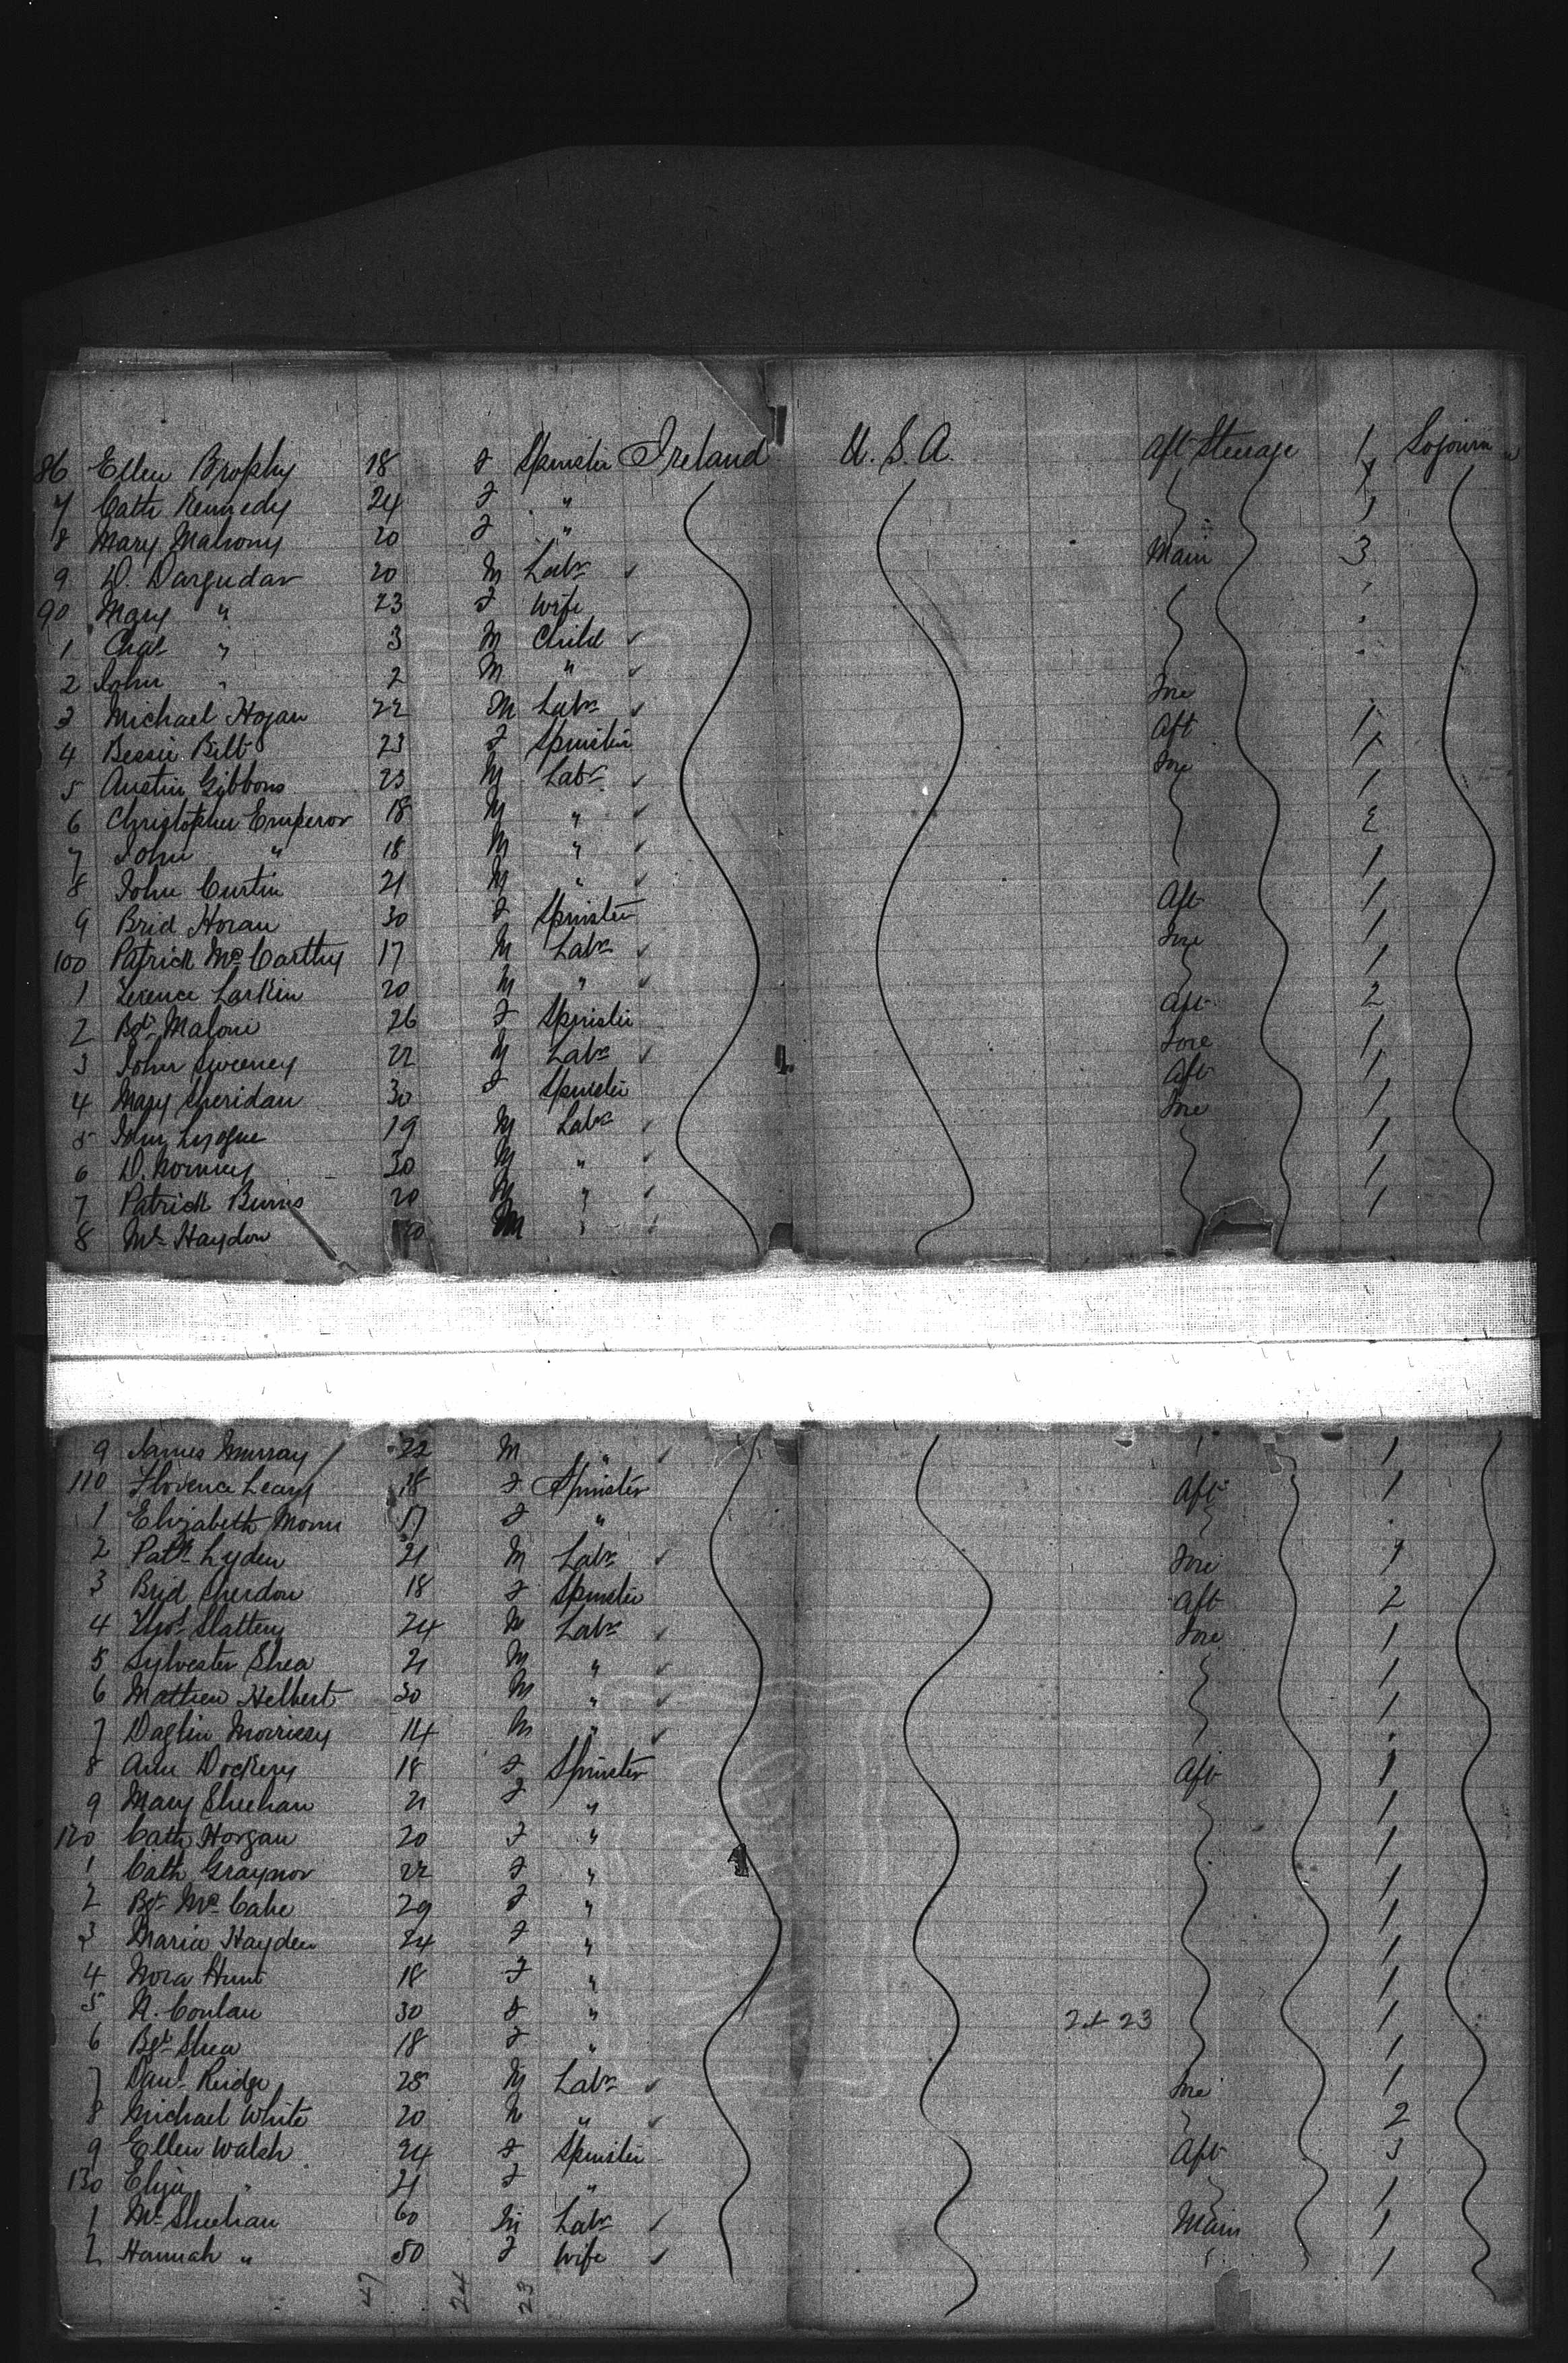 86 Ellen Brophy 18 F Spinster Ireland U.S.A. Aft Steerage 1 Sojourn
7 Cath Kennedy 24 F " 1
8 Mary Mahony 20 F " Main 3
9 D. 20 M Labr ✓
90 Mary " 23 F Wife
1 Chas " 3 M Child ✓
2 John " 2 M " ✓ Fore
3 Michael Hogan 22 M Labr ✓ Aft 1
4 Bessie 23 F Spinster Fore 1
5 Austin Gibbons 23 M Labr ✓ 1
6 Christopher Emperor 18 M " ✓ 2
7 John " 18 M " ✓ 1
8 John Curtin 21 M " ✓ Aft 1
9 Brid Horan 30 F Spinster Fore 1
100 Patrick McCarthy 17 M Labr ✓ 1
1 Terence Larkin 20 M " ✓ Aft 2
2 Bgt Malone 26 F Spinster Fore 1
3 John Sweeney 22 M Labr ✓ Aft 1
4 Mary Sheridan 30 F Spinster Fore 1
5 John 19 M Labr ✓ 1
6 D. 30 M " ✓ 1
7 Patrick Burns 20 M " ✓ 1
8 Ml Haydon M "
9 James Murray 22 M " ✓ 1
110 Florence Leary 18 F Spinster Aft 1
1 Elizabeth 17 F "
2 Patk Lyden 21 M Labr ✓ Fore 1
3 Brid 18 F Spinster Aft 2
4 Thos Slattery 24 M Labr ✓ Fore 1
5 Sylvester Shea 21 M " ✓ 1
6 Mathew Helbert 30 M " ✓ 1
7 Morrissy 14 M " ✓
8 Ann Dockery 18 F Spinster Aft 1
9 Mary Sheehan 21 F " 1
120 Cath Horgan 20 F " 1
1 Cath Graynor 22 F " 1
2 Bgt McCabe 29 F " 1
3 Maria Hayden 24 F " 1
4 Nora Hunt 18 F " 1
5 N. Conlan 30 F " 24 23 1
6 Bgt Shea 18 F " 1
7 Danl Ridge 28 M Labr ✓ Fore 1
8 Michael White 20 M " ✓ 2
9 Ellen Walsh 24 F Spinster Aft 3
130 Eliza " 21 F " 1
1 Ml Sheehan 60 M Labr ✓ Main 1
2 Hannah " 50 F Wife ✓ 1
47 24 23